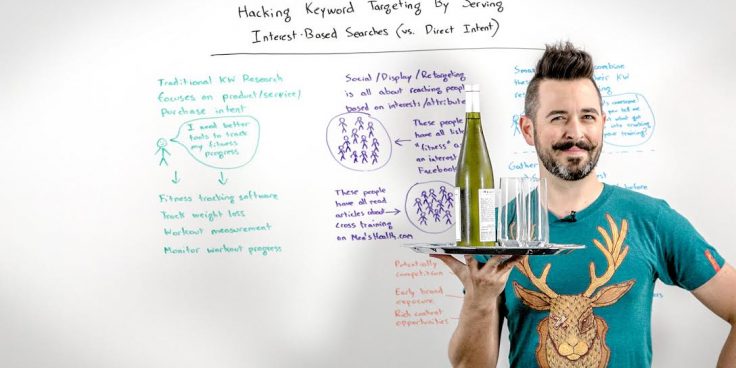 Hacking Keyword Targeting By Serving
Interest-Based Searches (vs. Direct Intent)
Traditional KW Research
focuses on product/service/
Purchase intent
I need better
tools to track
my fitness
progress
Fitness tracking software
Track weight loss
Workout measurement
Monitor workout progress
Social/Display/Retargeting
is all about reaching people
based on interests/attribute
These people
have all
"fitness" as
an interest
Facebook
These people
have all read
articles about
cross training
on Men'sHealth.com
Potentially
competition
Early brand
exposure
Rich content
opportunities
combine
their KW
awesome
you tell me
what got
into
your training?
Gather
before